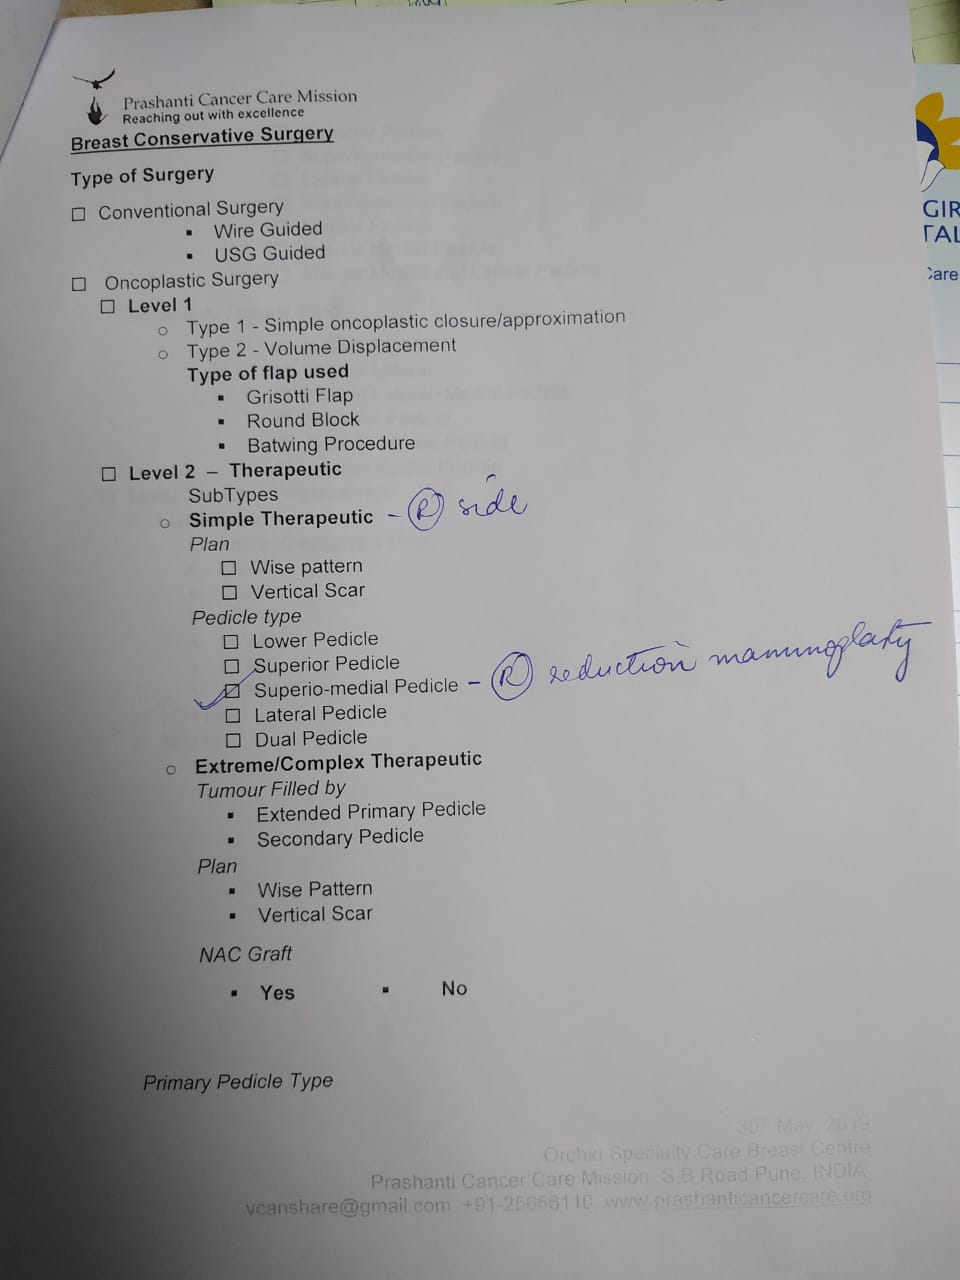 Prashanti Cancer Care Mission
Reaching out with excellence
Breast Conservative Surgery
Type of Surgery
☐ Conventional Surgery
▪ Wire Guided
▪ USG Guided
☐ Oncoplastic Surgery
☐ Level 1
○ Type 1 - Simple oncoplastic closure/approximation
○ Type 2 - Volume Displacement
Type of flap used
▪ Grisotti Flap
▪ Round Block
▪ Batwing Procedure
☐ Level 2 – Therapeutic
SubTypes
○ Simple Therapeutic - Ⓡ side
Plan
☐ Wise pattern
☐ Vertical Scar
Pedicle type
☐ Lower Pedicle
☐ Superior Pedicle
☑ Superio-medial Pedicle - Ⓡ reduction mammoplasty
☐ Lateral Pedicle
☐ Dual Pedicle
○ Extreme/Complex Therapeutic
Tumour Filled by
▪ Extended Primary Pedicle
▪ Secondary Pedicle
Plan
▪ Wise Pattern
▪ Vertical Scar
NAC Graft
▪ Yes ▪ No
Primary Pedicle Type
30th May, 2019
Orchid Specialty Care Breast Centre
Prashanti Cancer Care Mission, S.B Road Pune, INDIA.
vcanshare@gmail.com, +91-25656110, www.prashanticancercare.org
GIR
TAL
Care